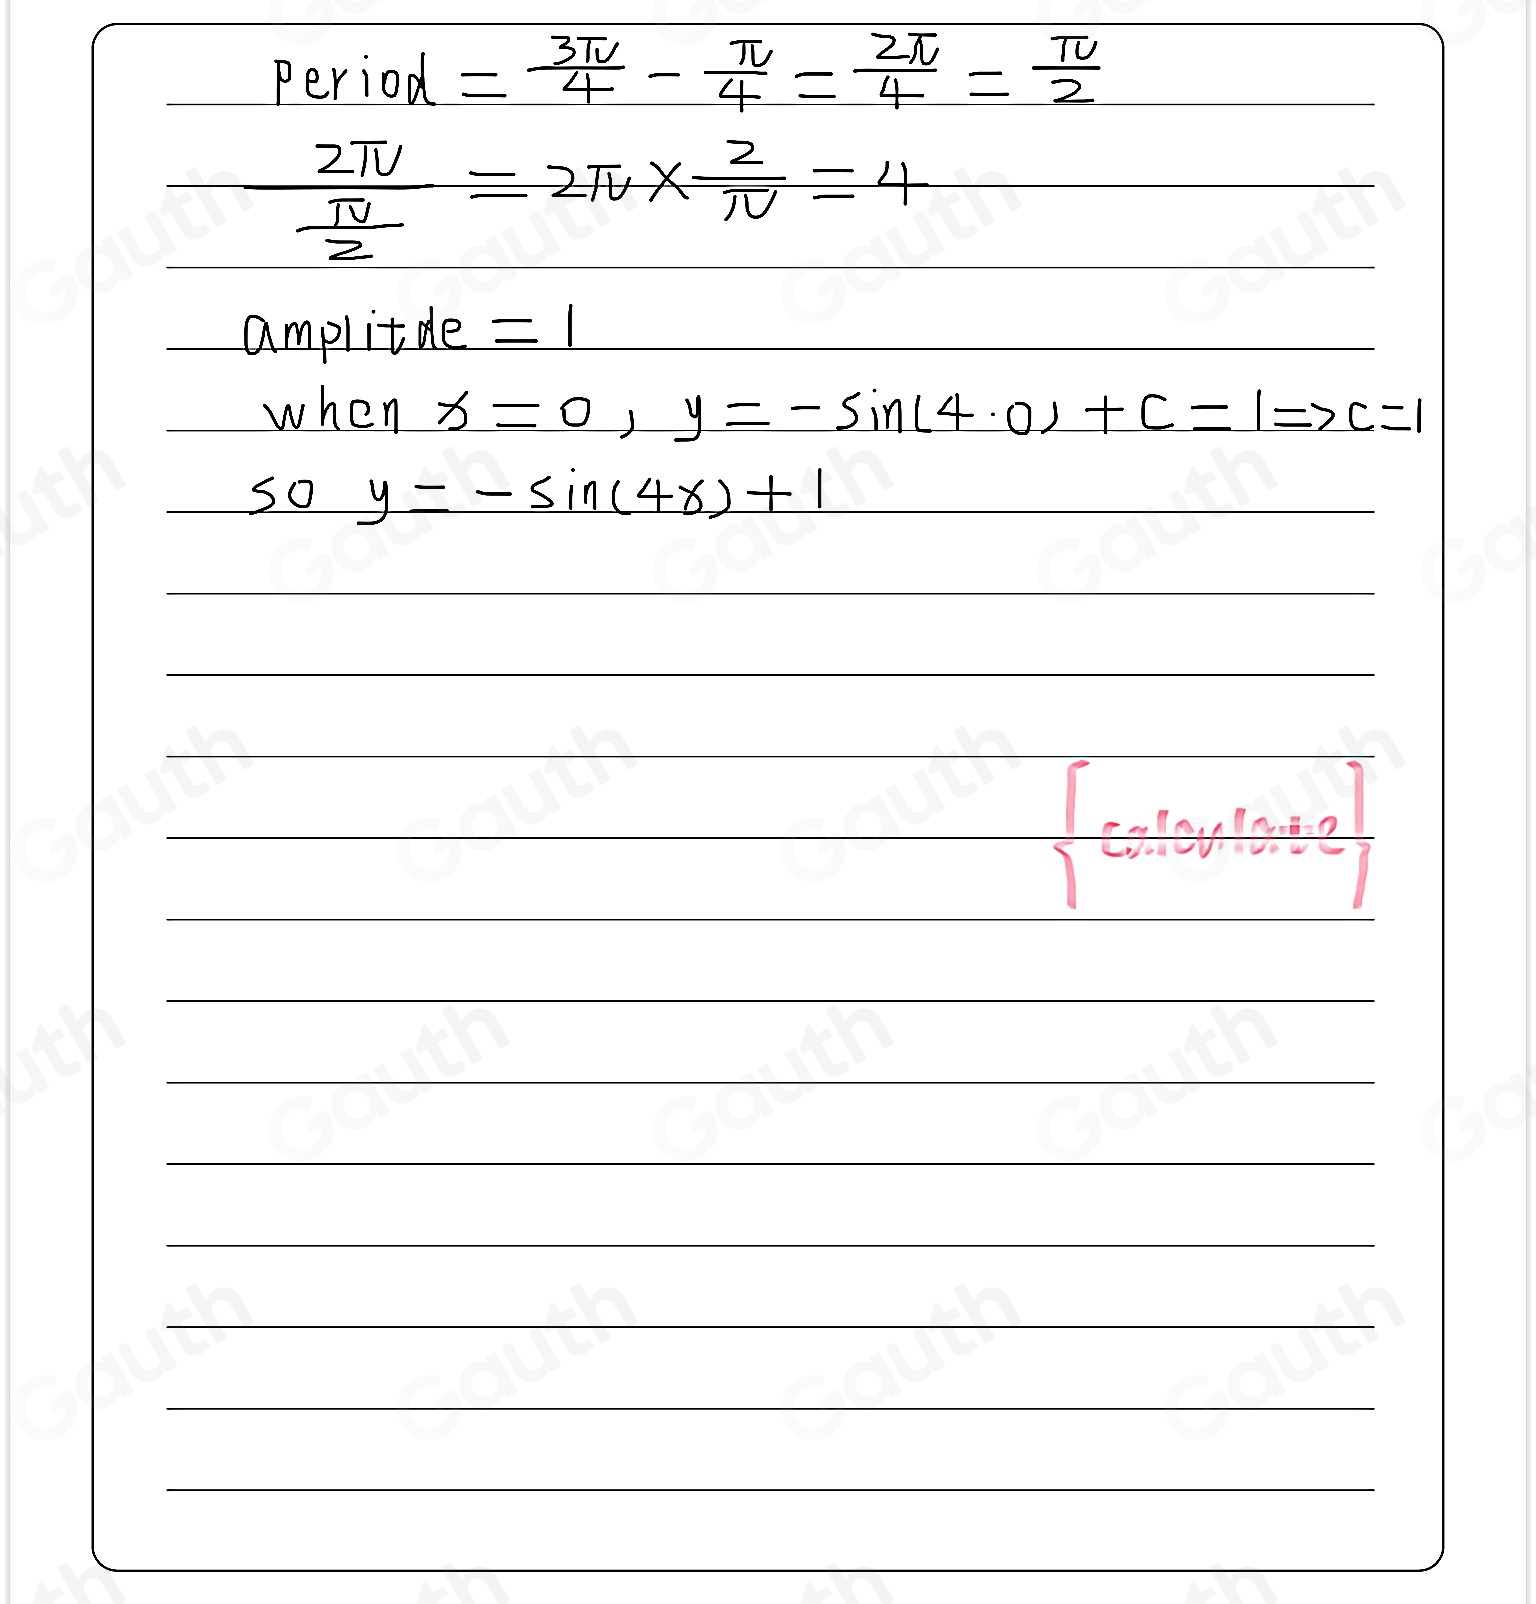 Period = 3π/4 - π/4 = 2π/4 = π/2
2π/(π/2) = 2π × 2/π = 4
amplitde = 1
when x = 0, y = -sin(4·0) + C = 1 => C = 1
so y = -sin(4x) + 1
{calculate}
Gauth